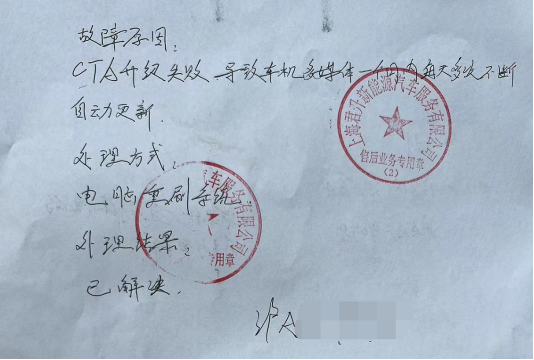 故障原因:
CTA升级失败 导致车机多媒体一个月内每天多次不断
自动更新.
上海君乃新能源汽车服务有限公司
售后业务专用章
(2)
处理方式:
电脑重刷系统
汽车服务有限公司
专用章
处理结果:
已解决.
沪A